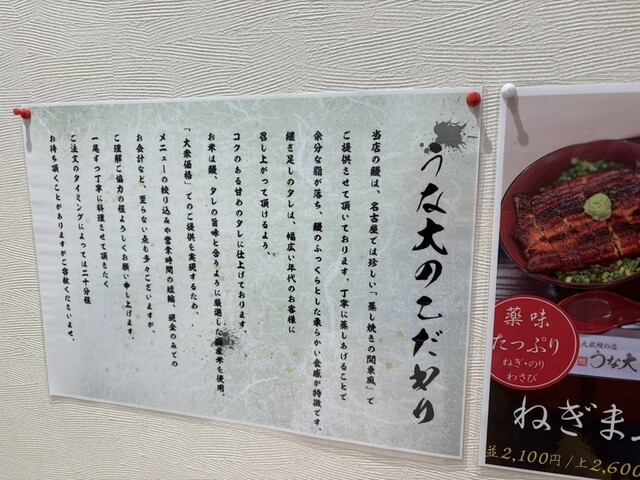 うな大のこだわり
当店の鰻は、名古屋では珍しい「蒸し焼きの関東風」で
ご提供させて頂いております。丁寧に蒸しあげることで
余分な脂が落ち、鰻のふっくらとした柔らかい食感が特徴です。
継ぎ足しのタレは、幅広い年代のお客様に
召し上がって頂けるよう、
コクのある甘めのタレに仕上げております。
お米は鰻、タレの旨味と合うように厳選した国産米を使用。
「大衆価格」でのご提供を実現するため、
メニューの絞り込みや営業時間の短縮、現金のみでの
お会計など、至らない点も多々ございますが、
ご理解ご協力の程よろしくお願い申し上げます。
一尾ずつ丁寧に料理させて頂きたく
ご注文のタイミングによっては二十分程
お待ち頂くことがありますがご容赦くださいませ。
薬味
たっぷり
ねぎ・のり
わさび
大衆鰻の店
うな大
ねぎま
並2,100円/上2,600